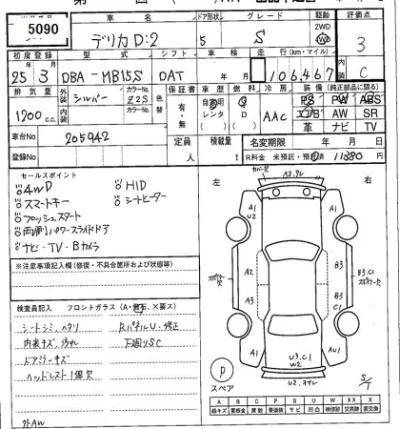 5090
車名
ドア形状
グレード
駆動
評価点
デリカD:2
5
S
2WD
3
初度登録
型式
シフト
車検
走行(km・マイル)
内装
25年3月
DBA-MB15S
DAT
年 月
106,467
C
排気量
外装
シルバー
カラーNo.
Z2S
色替
保証書
車歴
燃料
冷房
装備(純正部品に限る)
1200cc
内装
カラーNo.
有・無
自家用
レンタ
( )
G
D
( )
AAC
PS PW ABS
エアB AW SR
革 ナビ TV
車台No
205942
定員
積載量
名変期限
年 月 日
登録No
人
t
R料金 未預託・預託 11380円
セールスポイント
4WD
HID
スマートキー
シートヒーター
プッシュスタート
両側パワースライドドア
ナビ・TV・Bカメラ
※注意事項記入欄(修復・不具合箇所および状態等)
検査員記入 フロントガラス(A・飛石、×要ス)
シートシミ、ヘタリ
内装キズ、汚れ
下廻りSC
ドアミラーキズ
ヘッドレスト1個欠
外AW
左
右
A1
U2
A1
A2
B3
B3.C1
A3
B3
C1
A1
U3.C1
AU1
P
スペア